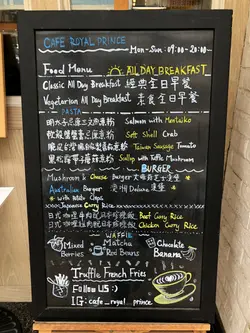 CAFE ROYAL PRINCE
Mon-Sun: 09:00-20:00
Food Menu ALL DAY BREAKFAST
Classic All Day Breakfast 經典全日早餐
Vegetarian All Day Breakfast 素食全日早餐
PASTA
明太子三文魚粉 Salmon with Mentaiko
軟殼蟹 Soft Shell Crab
脆皮台灣腸 Taiwan Sausage Tomato
黑松露 帶子 粉 Scallop with Truffle Mushroom
BURGER
Mushroom & Cheese Burger
Australian Burger 澳洲
with Potato Chips
Japanese Curry Rice
日式咖喱牛 飯 Beef Curry Rice
日式咖喱 飯 Chicken Curry Rice
WAFFLE
Mixed Berries
Matcha Red Beans
Chocolate Banana
Truffle French Fries
Follow US :)
IG: cafe_royal_prince